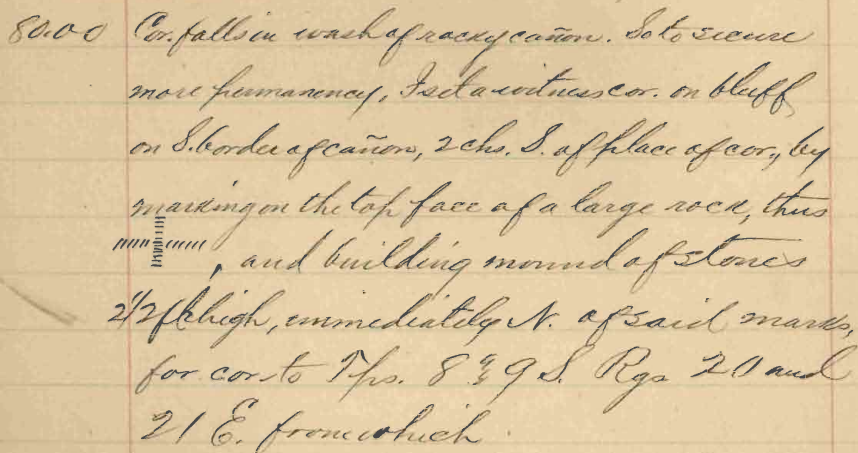 80.00 Cor. falls in wash of rocky cañon. So to secure
more permanency, I set a witness cor. on bluff
on S. border of cañon, 2 chs. S. of place of cor., by
marking on the top face of a large rock, thus
, and building mound of stones
2 1/2 ft high, immediately N. of said marks,
for cor. to Tps. 8 & 9 S. Rgs 20 and
21 E. from which